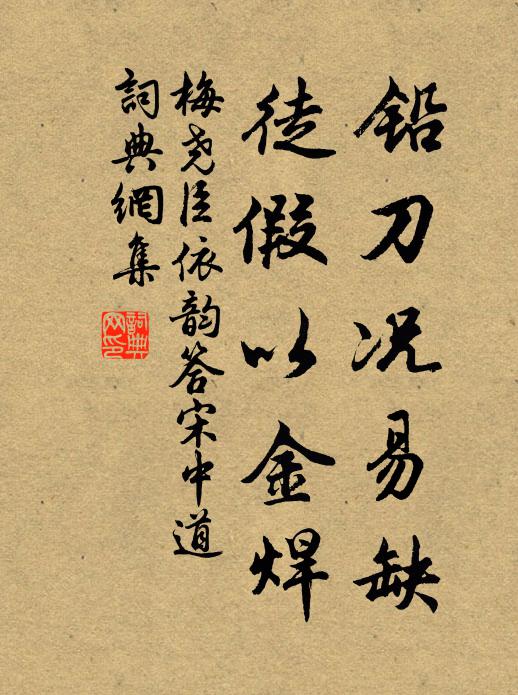 铅刀况易缺
徒假以金焊
梅尧臣依韵答宋中道
詞典網集
詞典网印